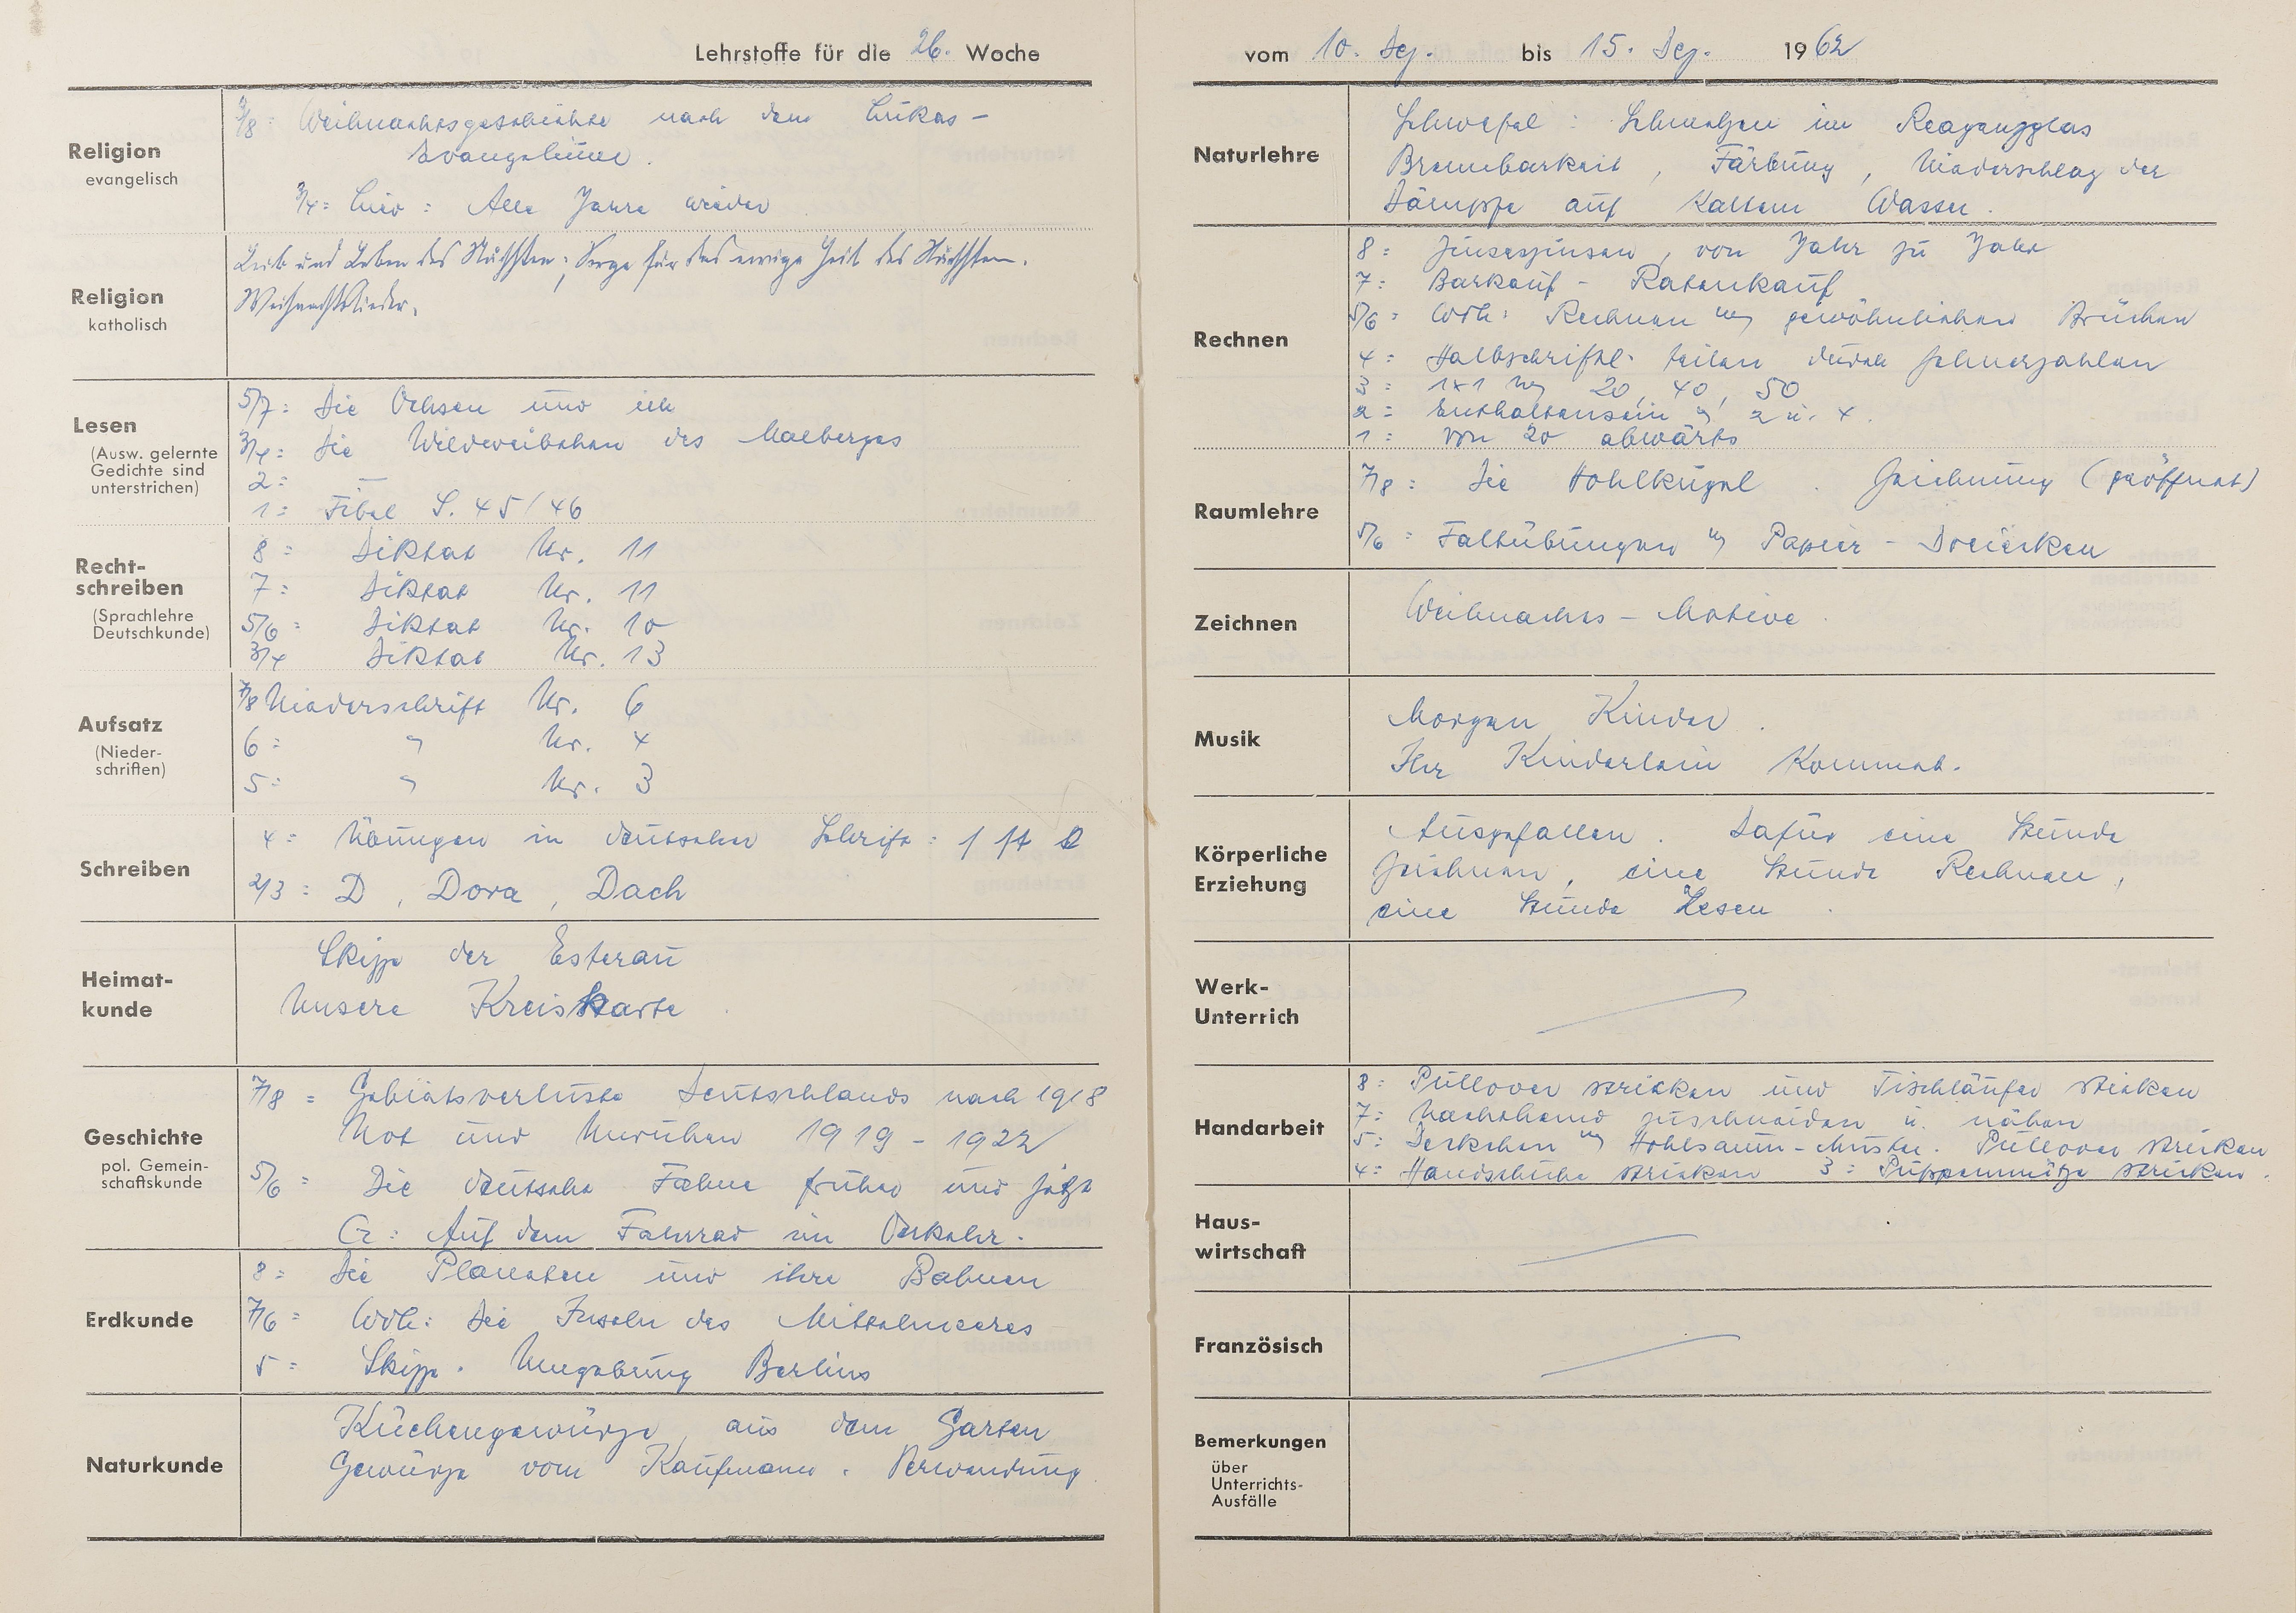 Lehrstoffe für die 26. Woche
Religion
evangelisch
8: Weihnachtsgeschichte nach dem Lukas-
Evangelium.
3/4: Lied: Alle Jahre wieder
Religion
katholisch
Leib und Leben des Nächsten; Sorge für das ewige Heil des Nächsten.
Weihnachtslieder.
Lesen
(Ausw. gelernte
Gedichte sind
unterstrichen)
5/7: Die Ochsen und ich
3/4: Die Wildweibchen des Malberges
2: —
1: Fibel S. 45/46
Recht-
schreiben
(Sprachlehre
Deutschkunde)
8: Diktat Nr. 11
7: Diktat Nr. 11
5/6: Diktat Nr. 10
3/4 Diktat Nr. 13
Aufsatz
(Nieder-
schriften)
7/8 Niederschrift Nr. 6
6: " Nr. 4
5: " Nr. 3
Schreiben
4: Übungen in deutscher Schrift:
2/3: D, Dora, Dach
Heimat-
kunde
Skizze der Esterau
Unsere Kreiskarte
Geschichte
pol. Gemein-
schaftskunde
7/8: Gebietsverluste Deutschlands nach 1918
Not und Unruhen 1919-1922
5/6: Die deutsche Fahne früher und jetzt
G: Auf dem Fahrrad im Verkehr.
Erdkunde
8: Die Planeten und ihre Bahnen
7/6: Wdh: Die Inseln des Mittelmeeres
5: Skizze. Umgebung Berlins
Naturkunde
Küchengewürze aus dem Garten
Gewürze vom Kaufmann. Verwendung
vom 10. Dez. bis 15. Dez. 1962
Naturlehre
Schwefel: Schmelzen im Reagenzglas
Brennbarkeit, Färbung, Niederschlag der
Dämpfe auf kaltem Wasser.
Rechnen
8: Zinseszinsen, von Jahr zu Jahr
7: Barkauf - Ratenkauf
5/6: Wdh: Rechnen m gewöhnlichen Brüchen
4: Halbschriftl. teilen durch Zehnerzahlen
3: 1x1 m 20, 40, 50
2: Enthaltensein m 2 u. 4.
1: von 20 abwärts
Raumlehre
7/8: Die Hohlkugel. Zeichnung (geöffnet)
5/6: Faltübungen m Papier-Dreiecken
Zeichnen
Weihnachts-Motive.
Musik
Morgen Kinder.
Ihr Kinderlein kommet.
Körperliche
Erziehung
Ausgefallen. Dafür eine Stunde
Zeichnen, eine Stunde Rechnen,
eine Stunde Lesen.
Werk-
Unterrich
Handarbeit
8: Pullover stricken und Tischläufer sticken
7: Nachthemd zuschneiden u. nähen
5: Deckchen m Hohlsaum-Muster. Pullover stricken
4: Handschuhe stricken 3: Puppenmütze stricken.
Haus-
wirtschaft
Französisch
Bemerkungen
über
Unterrichts-
Ausfälle